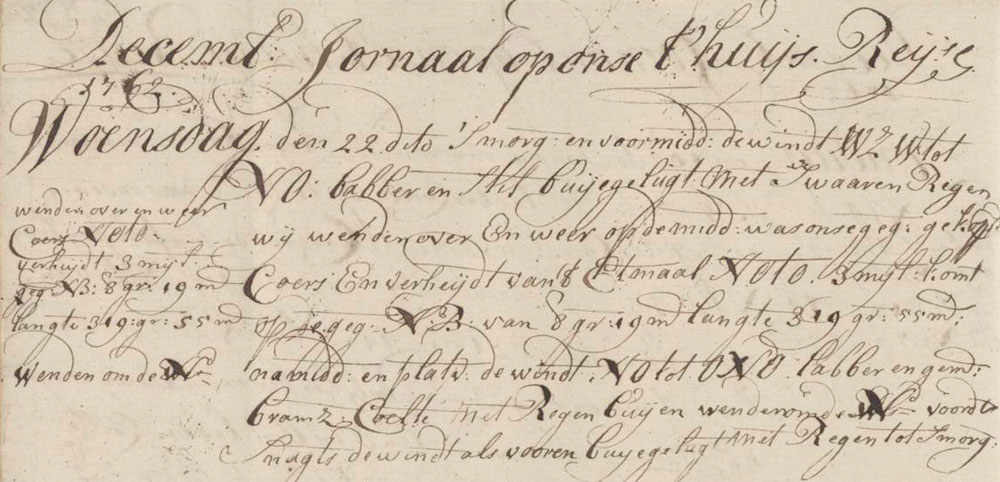 Decemb: Jornaal op onse t'huijs. Reijse
1762.
Woensdag. den 22 dito 'Smorg: en voormidd: de windt WZW tot
NO: labber en Stil buijege lugt Met Swaaren Regen
wenden over en weer
wij wenden over En weer op de midd: was onse geg: gekop:
Coers NOTO.
verheijdt 3 mijl:
Coers En verheijdt van't Etmaal NOTO. 3 mijl: komt
geg: NB: 8 gr: 19 md
langte 319: gr: 55 md
op se geg: NB: van 8 gr: 19 md langte 319 gr: 55 md:
wenden om de
namidd: en platv: de windt: NO tot ONO. labber en gemd:
bramz: Coelte met Regen buijen wende voorts
Snagts de windt als vooren buijege lugt met Regen tot Smorg: